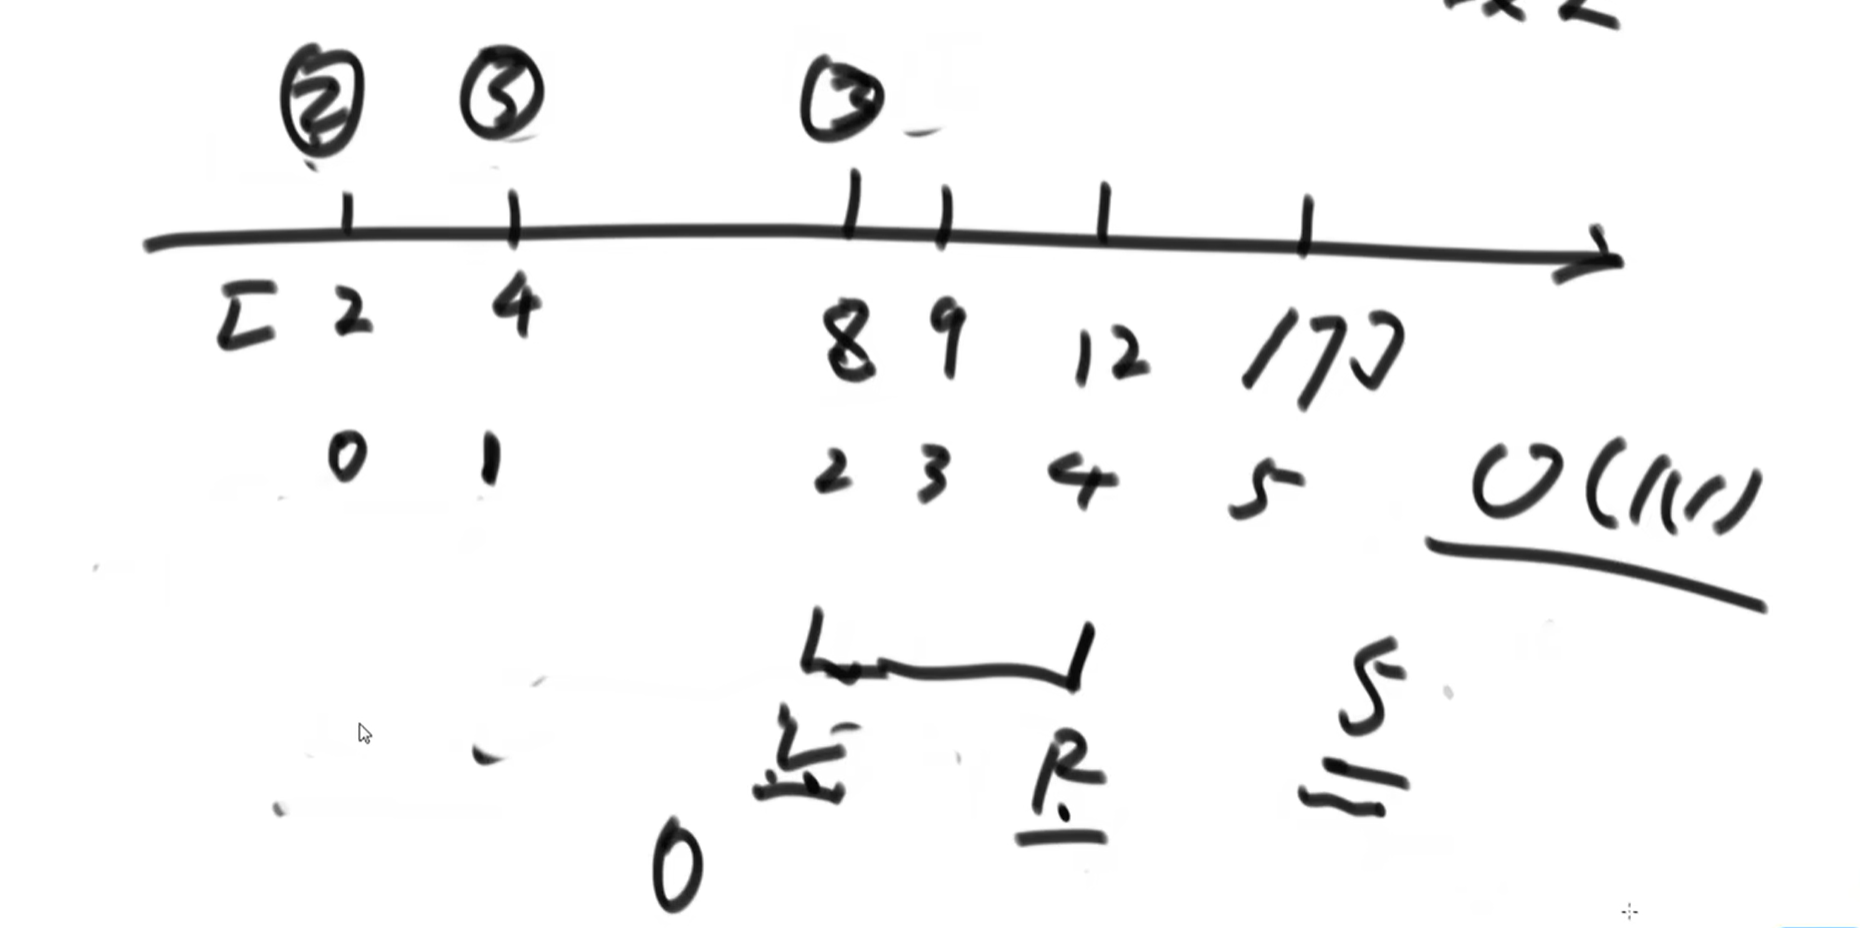 2 3 3
[ 2 4 8 9 12 17 ]
0 1 2 3 4 5
5
L R
0